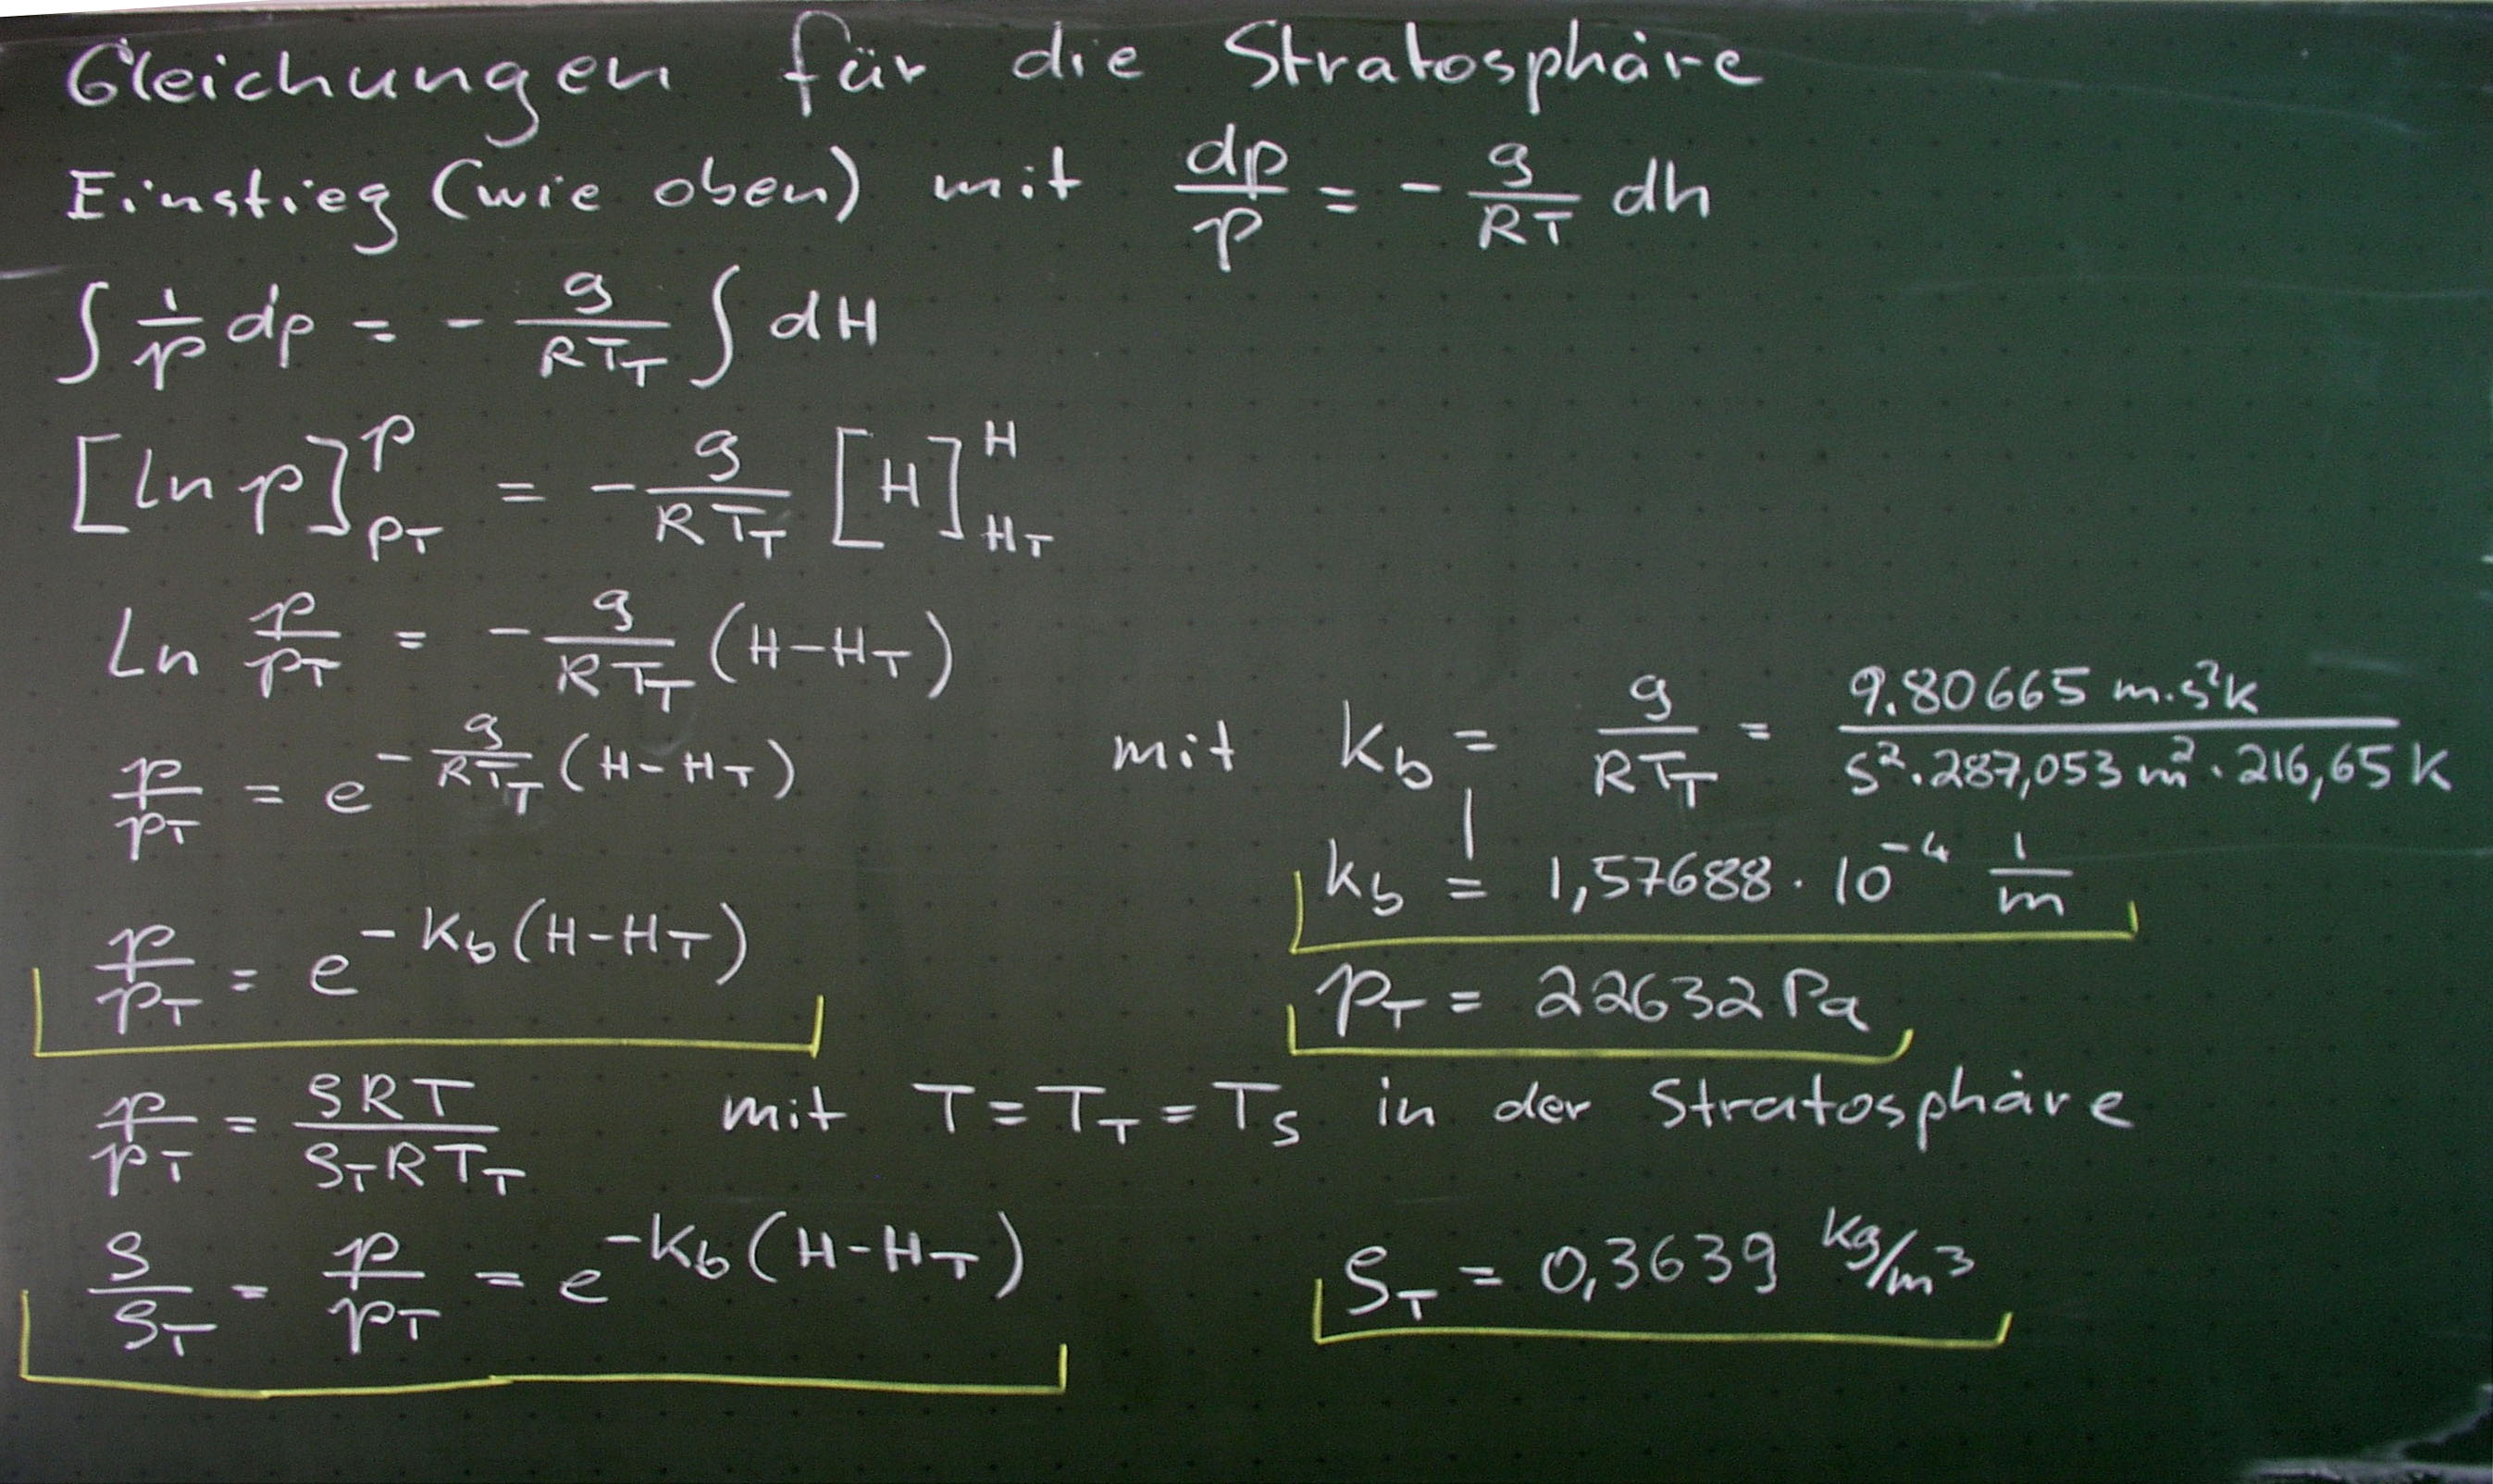 Gleichungen für die Stratosphäre
Einstieg (wie oben) mit dp/p = - g/RT dh
∫ 1/p dp = - g/(R T_T) ∫ dH
[ln p]_{p_T}^{p} = - g/(R T_T) [H]_{H_T}^{H}
Ln p/p_T = - g/(R T_T) (H-H_T)
p/p_T = e^{- g/(R T_T) (H-H_T)} mit k_b = g/(R T_T) = 9.80665 m·s²K / s²·287,053 m²·216,65 K
k_b = 1,57688 · 10^{-4} 1/m
p/p_T = e^{-K_b (H-H_T)}
p_T = 22632 Pa
p/p_T = ρRT / ρ_T R T_T mit T = T_T = T_S in der Stratosphäre
ρ/ρ_T = p/p_T = e^{-K_b (H-H_T)} ρ_T = 0,3639 kg/m³